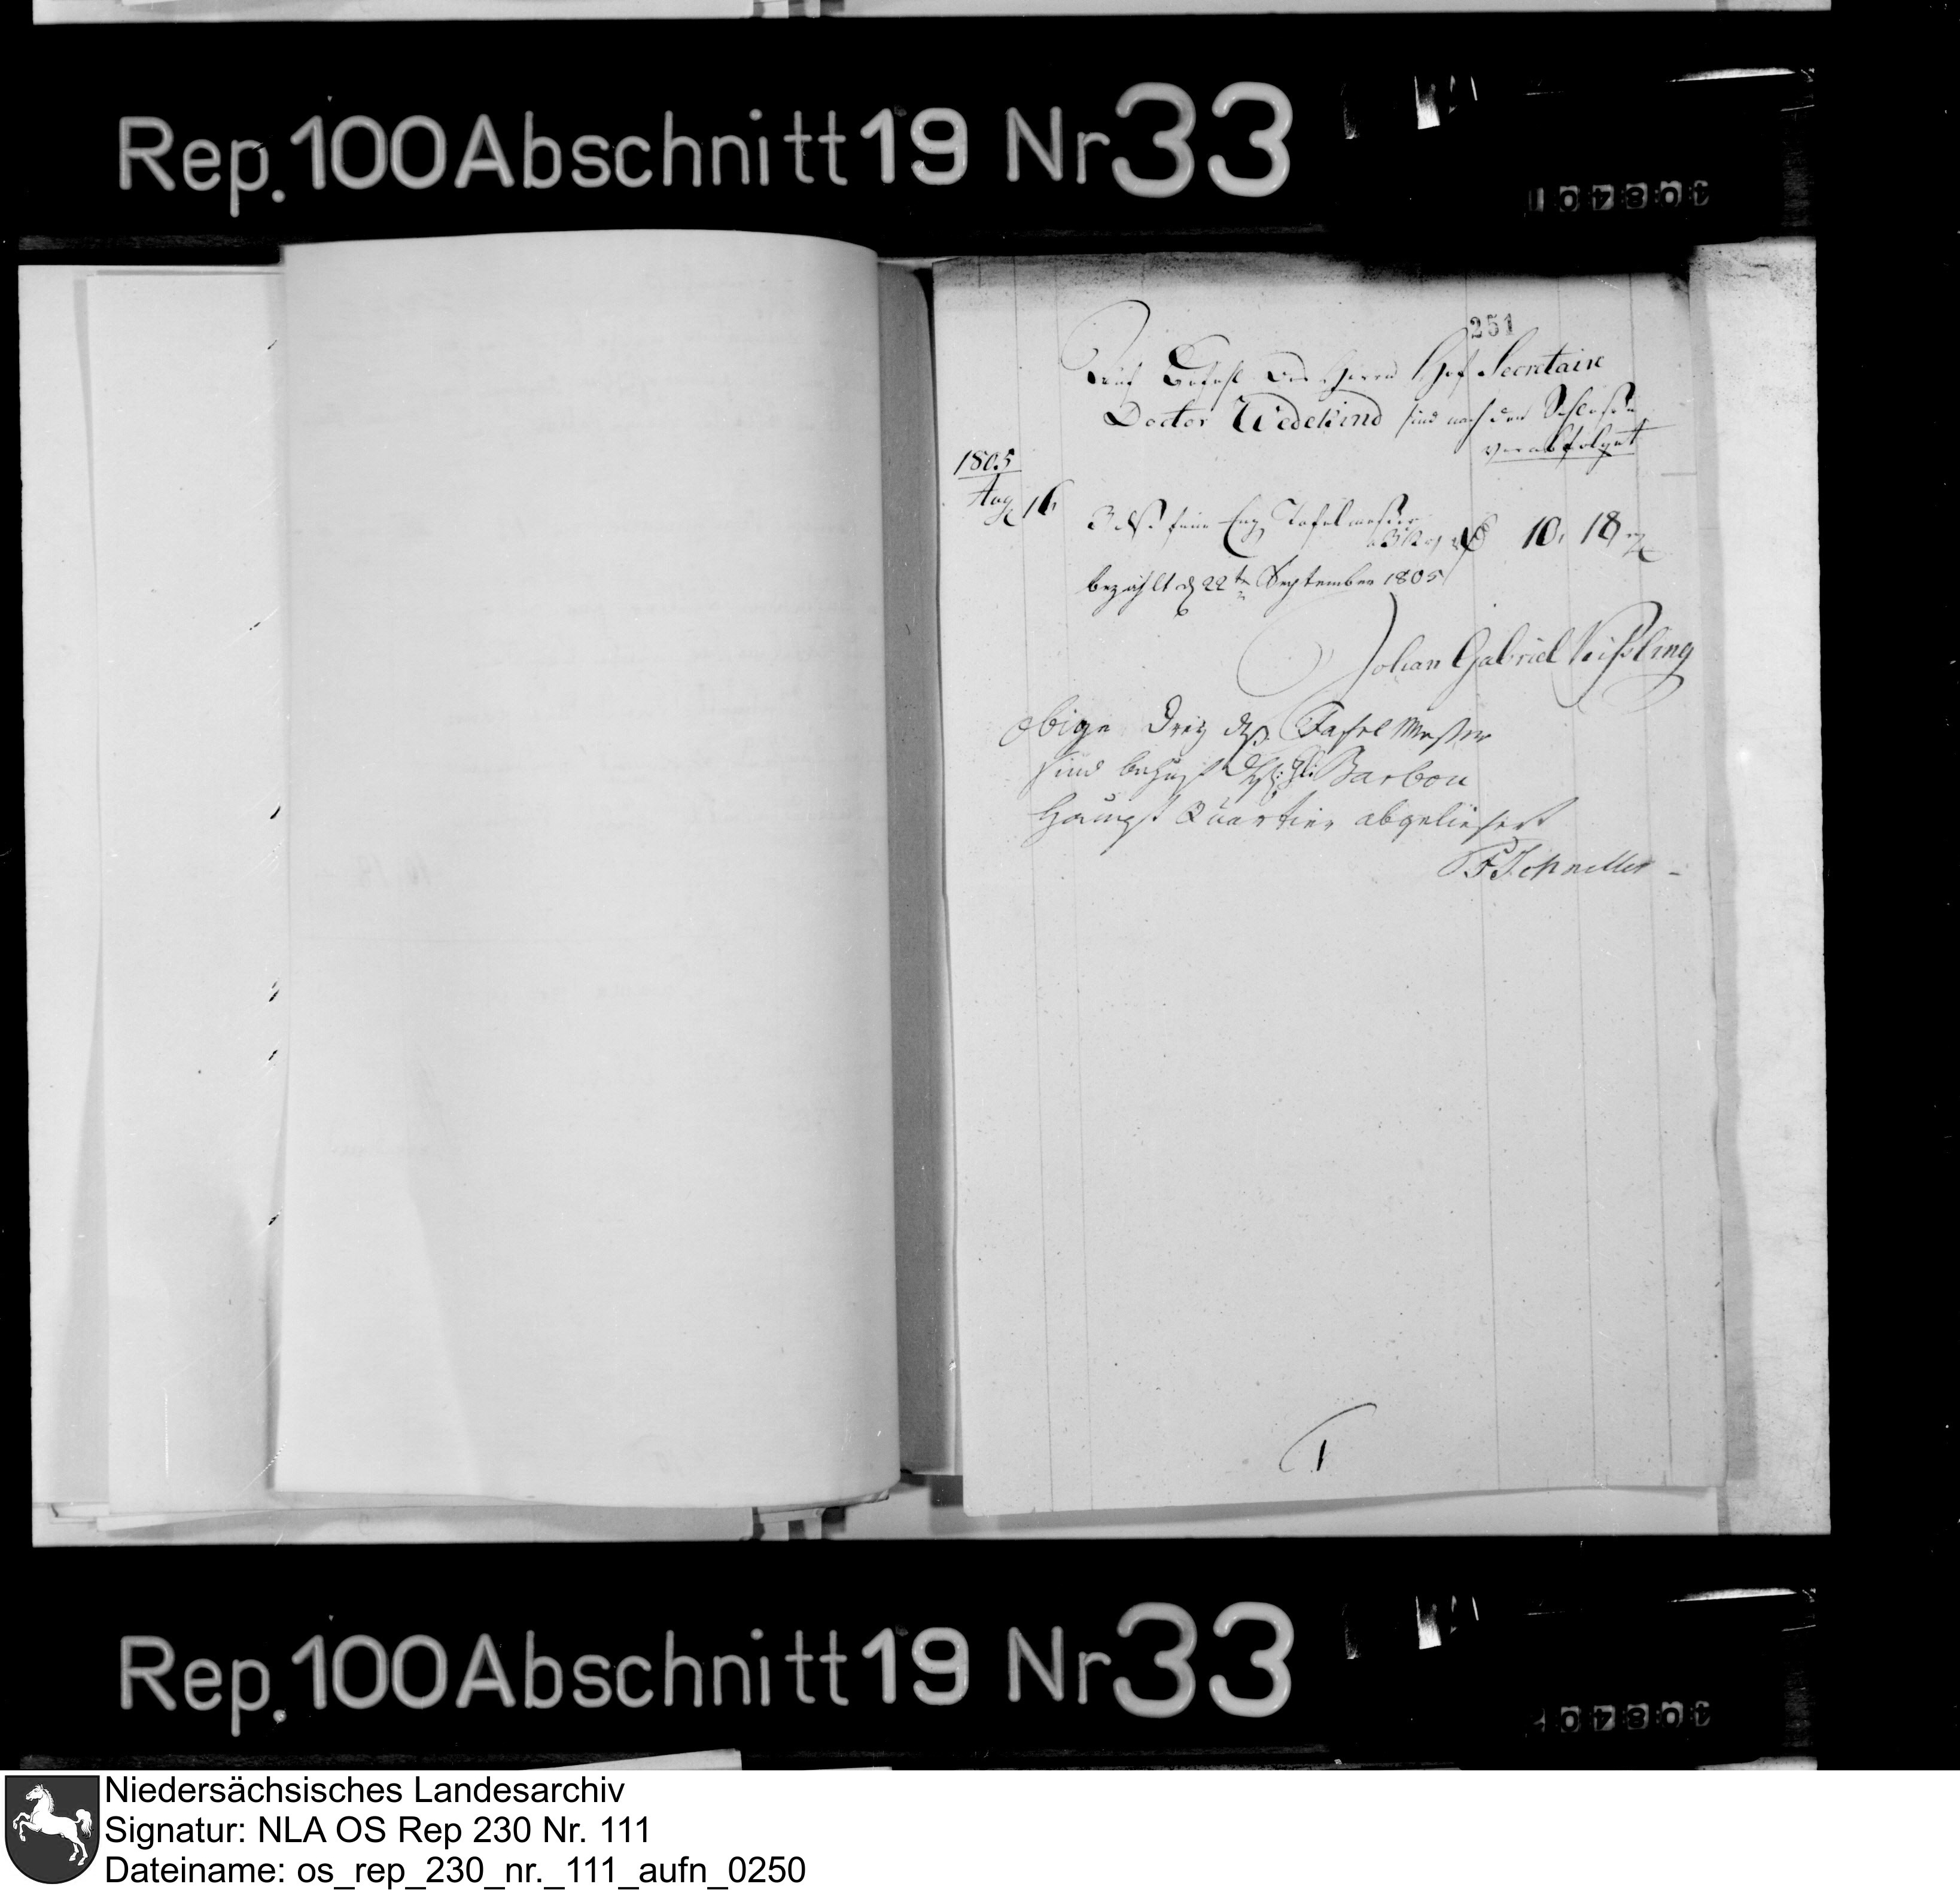 Rep. 100 Abschnitt 19 Nr 33
251
Auf Befehl des Herrn Hof Secretaire
Doctor Wedekind sind nach dem Schloße
verabfolget
1805
Aug 16
3 dß. feine Eng Tafelmeßer
10, 18
bezahlt d 22ten September 1805
Johan Gabriel
obige Dreÿ dß. Taffel Meßer
sind behuef Barbou
Haupt Quartier abgeliefert
F Schneller
1
Rep. 100 Abschnitt 19 Nr 33
Niedersächsisches Landesarchiv
Signatur: NLA OS Rep 230 Nr. 111
Dateiname: os_rep_230_nr._111_aufn_0250